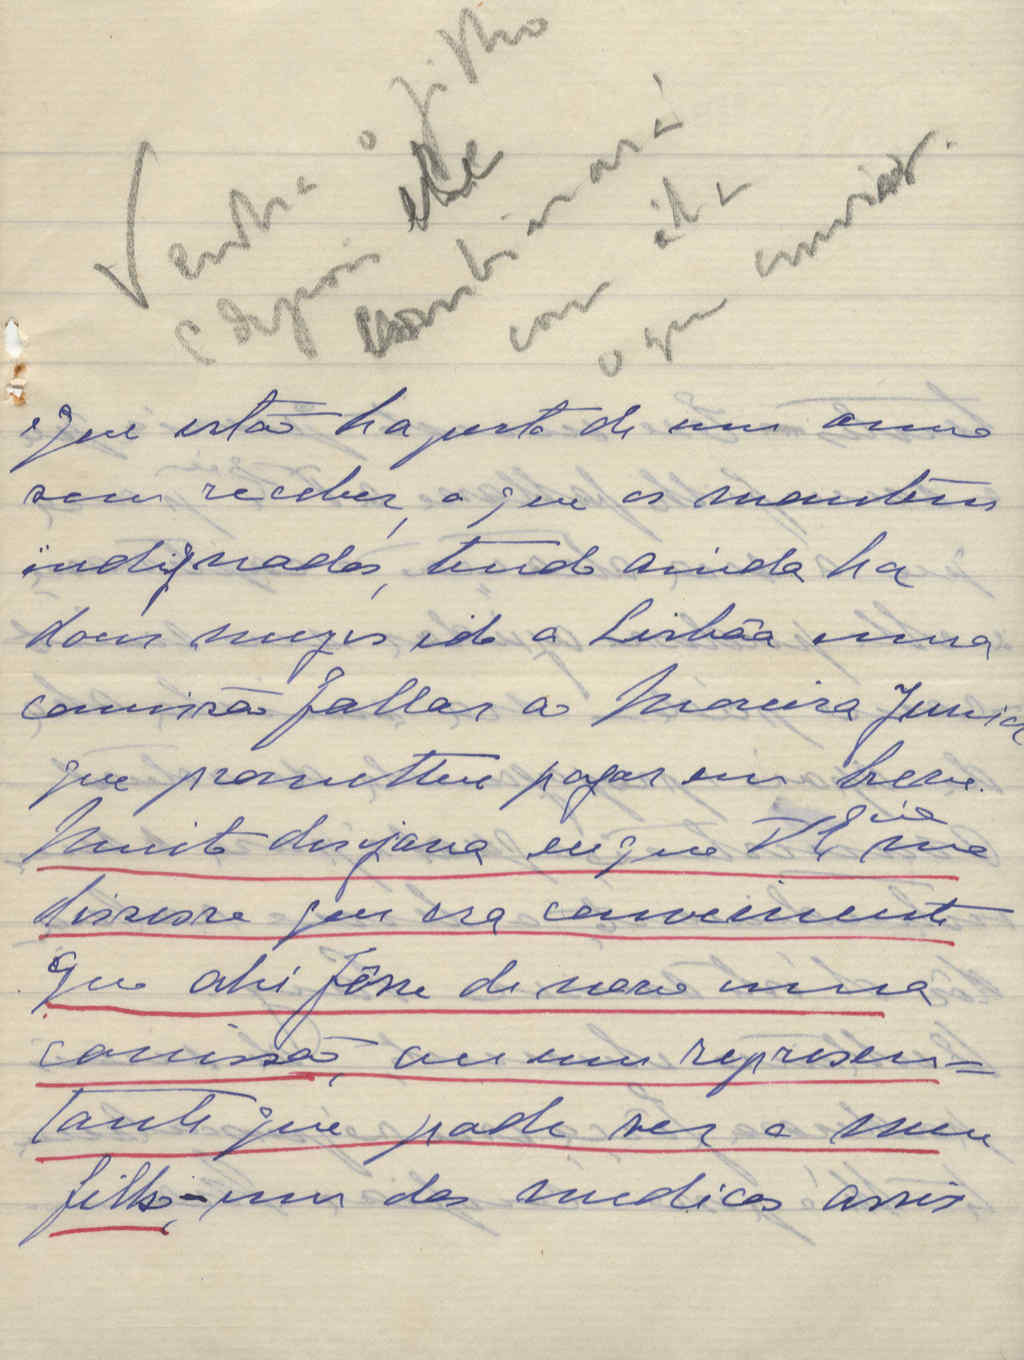 Venha o filho
e depois elle
continuará
com ella
o que convier.
que estão ha perto de um anno
sem receber, o que os mantem
indignados, tendo ainda ha
dous mezes ido a Lisbôa uma
comissão fallar a Moreira Junior
que prometteu pagar em breve.
Muito desejava eu que V. Exª me
dissesse que era conveniente
que ahi fôsse de novo uma
comissão, ou um represen=
tante que pode ser o meu
filho, – um dos medicos assis